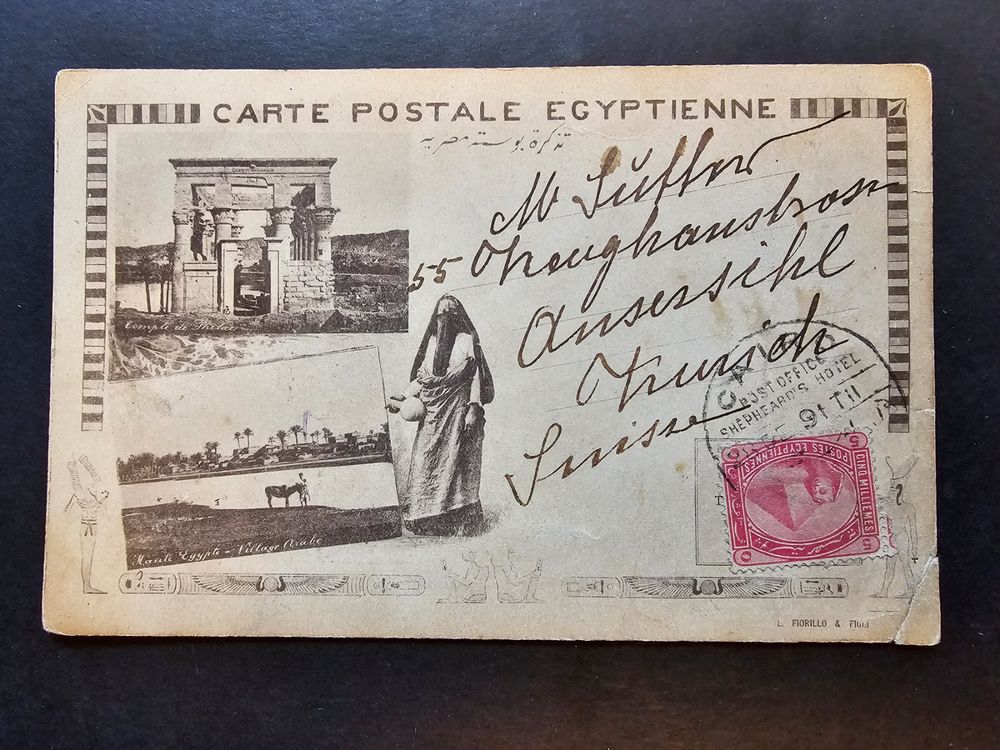 CARTE POSTALE EGYPTIENNE
تذكرة بوستة مصريه
M Sutter
55 Zeughausstrasse
Aussersihl
Zurich
Suisse
Temple de Philae
Haute Egypte - Village Arabe
CAIRO
POST OFFICE
SHEPHEARD'S HOTEL
POSTES EGYPTIENNES
CINQ MILLIEMES
5
5
L. FIORILLO & FIGLI